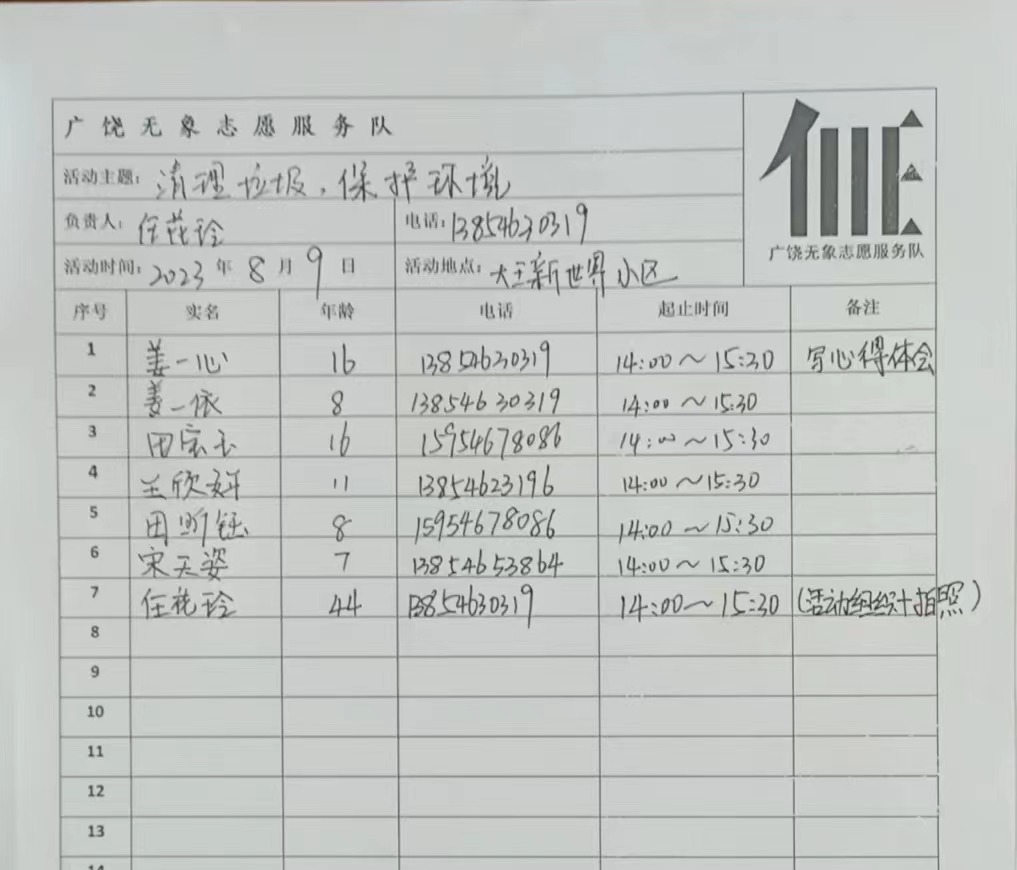 广饶无象志愿服务队
活动主题：清理垃圾，保护环境
负责人：任花玲 电话：13854630319
广饶无象志愿服务队
活动时间：2023年8月9日 活动地点：大王新世界小区
序号 实名 年龄 电话 起止时间 备注
1 姜一心 16 13854630319 14:00～15:30 写心得体会
2 姜一依 8 13854630319 14:00～15:30
3 田宗玉 16 15954678086 14:00～15:30
4 兰欣妍 11 13854623196 14:00～15:30
5 田 钰 8 15954678086 14:00～15:30
6 宋天姿 7 13854653864 14:00～15:30
7 任花玲 44 13854630319 14:00～15:30 (活动组织+拍照)
8
9
10
11
12
13
14